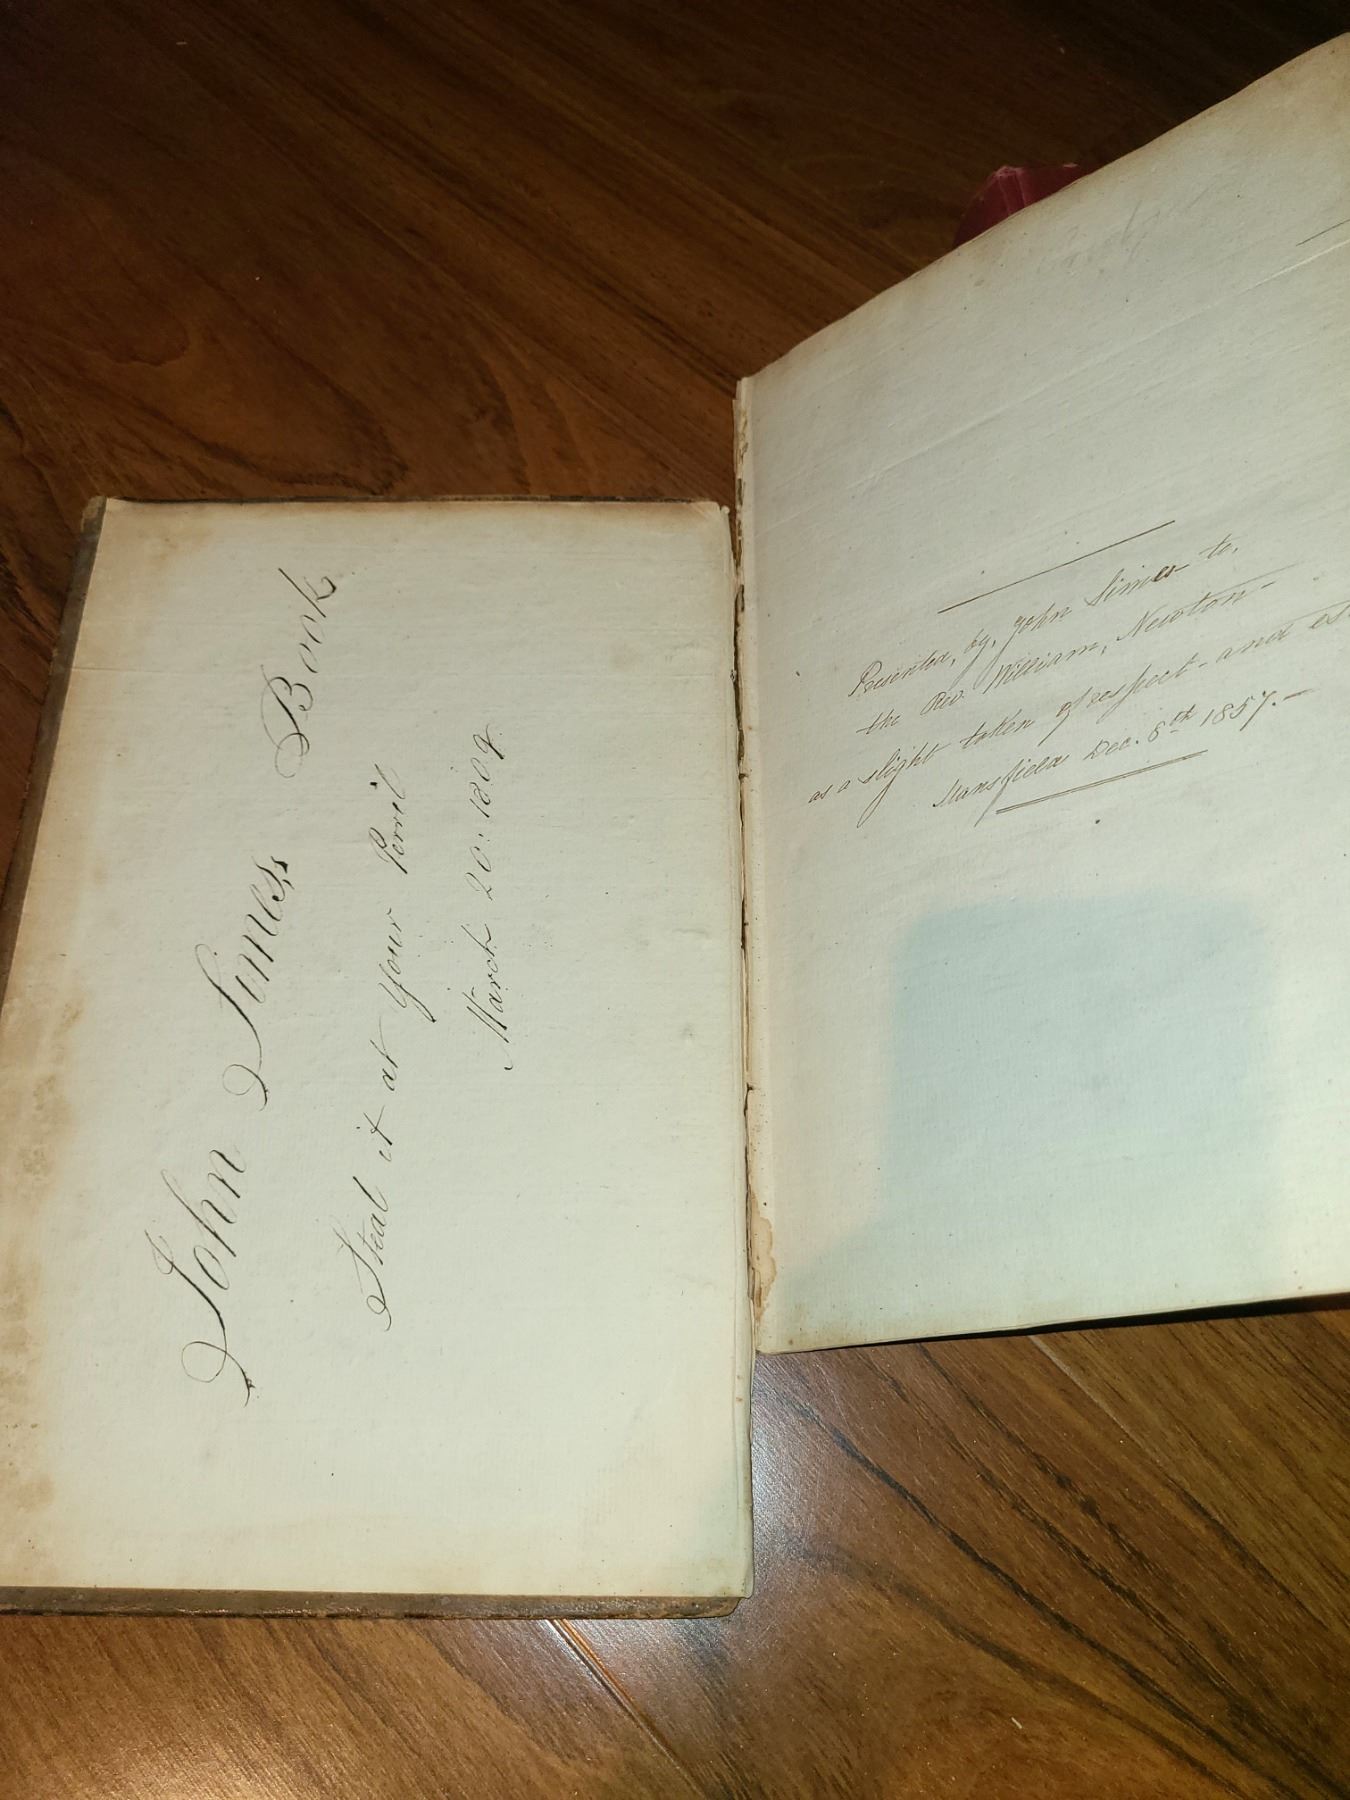 John Simes,, Book
Steal it at your Perril
March 20: 1809
Presented, by, John Simes to,
the Rev. William, Newton-
as a slight taken of respect- and es
Mansfield Dec. 8th 1857.-